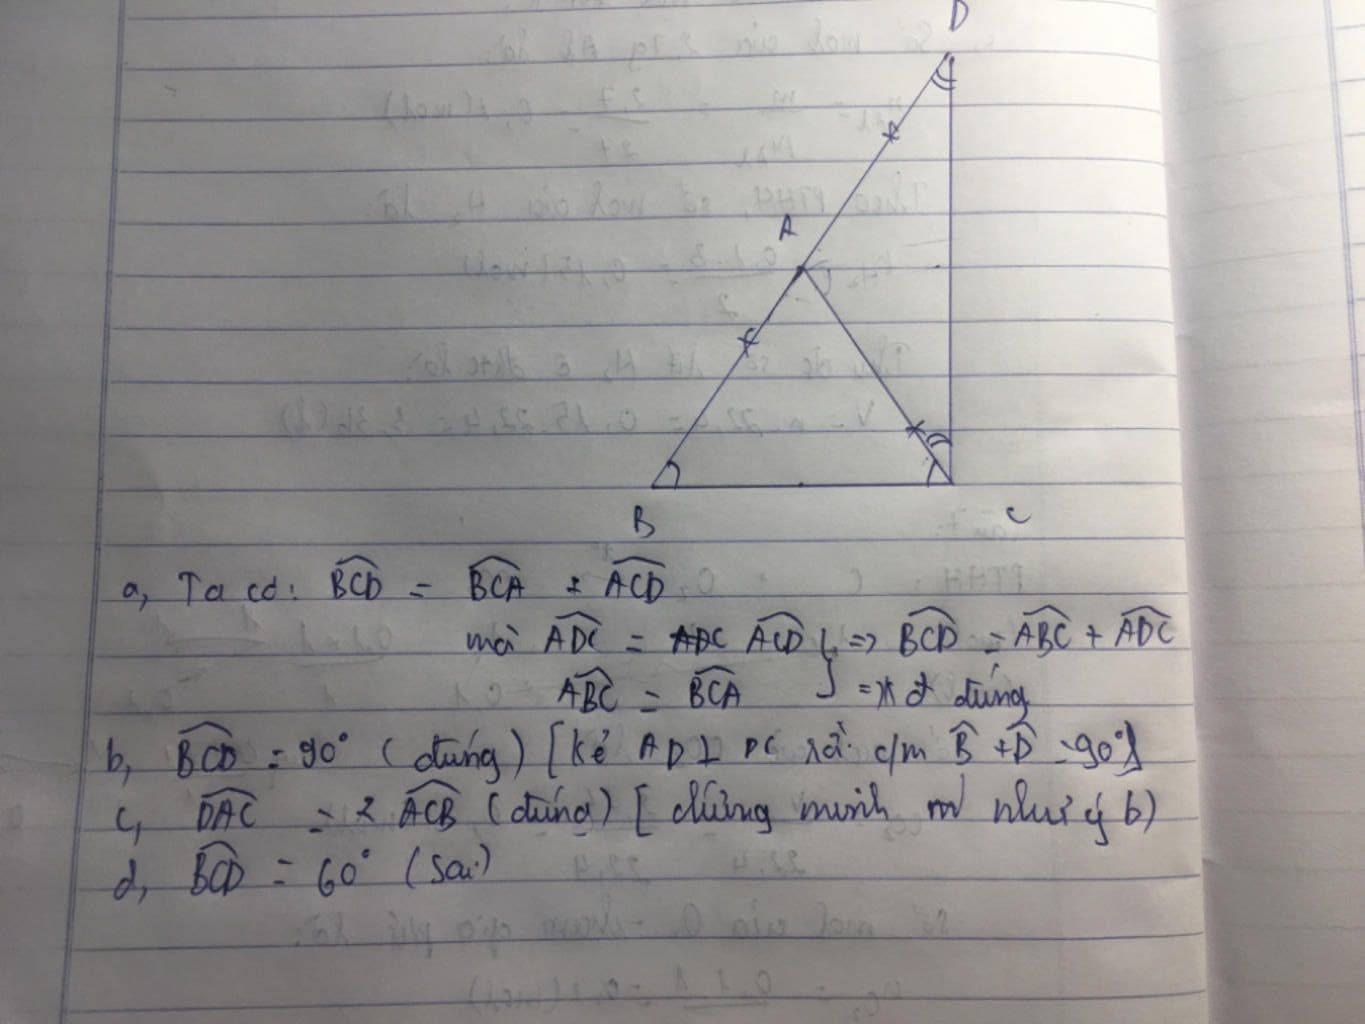 D
A
B
C
a, Ta có: BCD = BCA + ACD
mà ADC = ADC ACD } => BCD = ABC + ADC
ABC = BCA } => đúng
b, BCD = 90° (đúng) [kẻ AD ⊥ DC rồi c/m B + D = 90°]
c, DAC = 2 ACB (đúng) [chứng minh như ý b)
d, BCD = 60° (Sai)